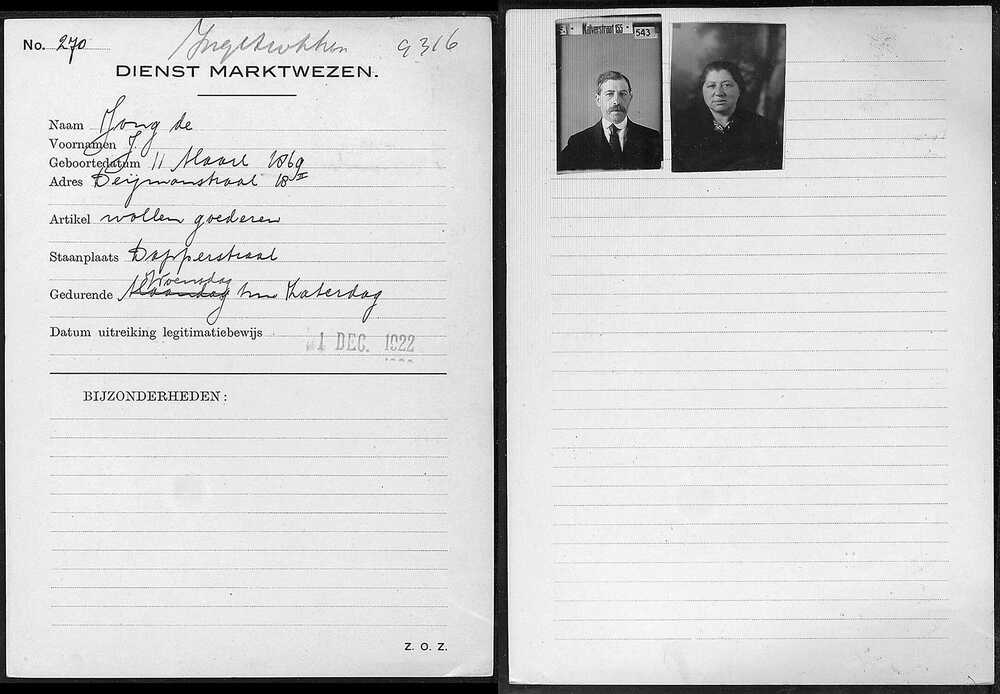 No. 270 Ingetrokken 9316
DIENST MARKTWEZEN.
Naam Jong de
Voornamen J.
Geboortedatum 11 Maart 1869
Adres Deijmanstraat 18 II
Artikel wollen goederen
Staanplaats Dapperstraat
Woensdag
Gedurende Maandag t/m Zaterdag
Datum uitreiking legitimatiebewijs 1 DEC. 1922
BIJZONDERHEDEN:
Z. O. Z.
Kalverstraat 155 - 543